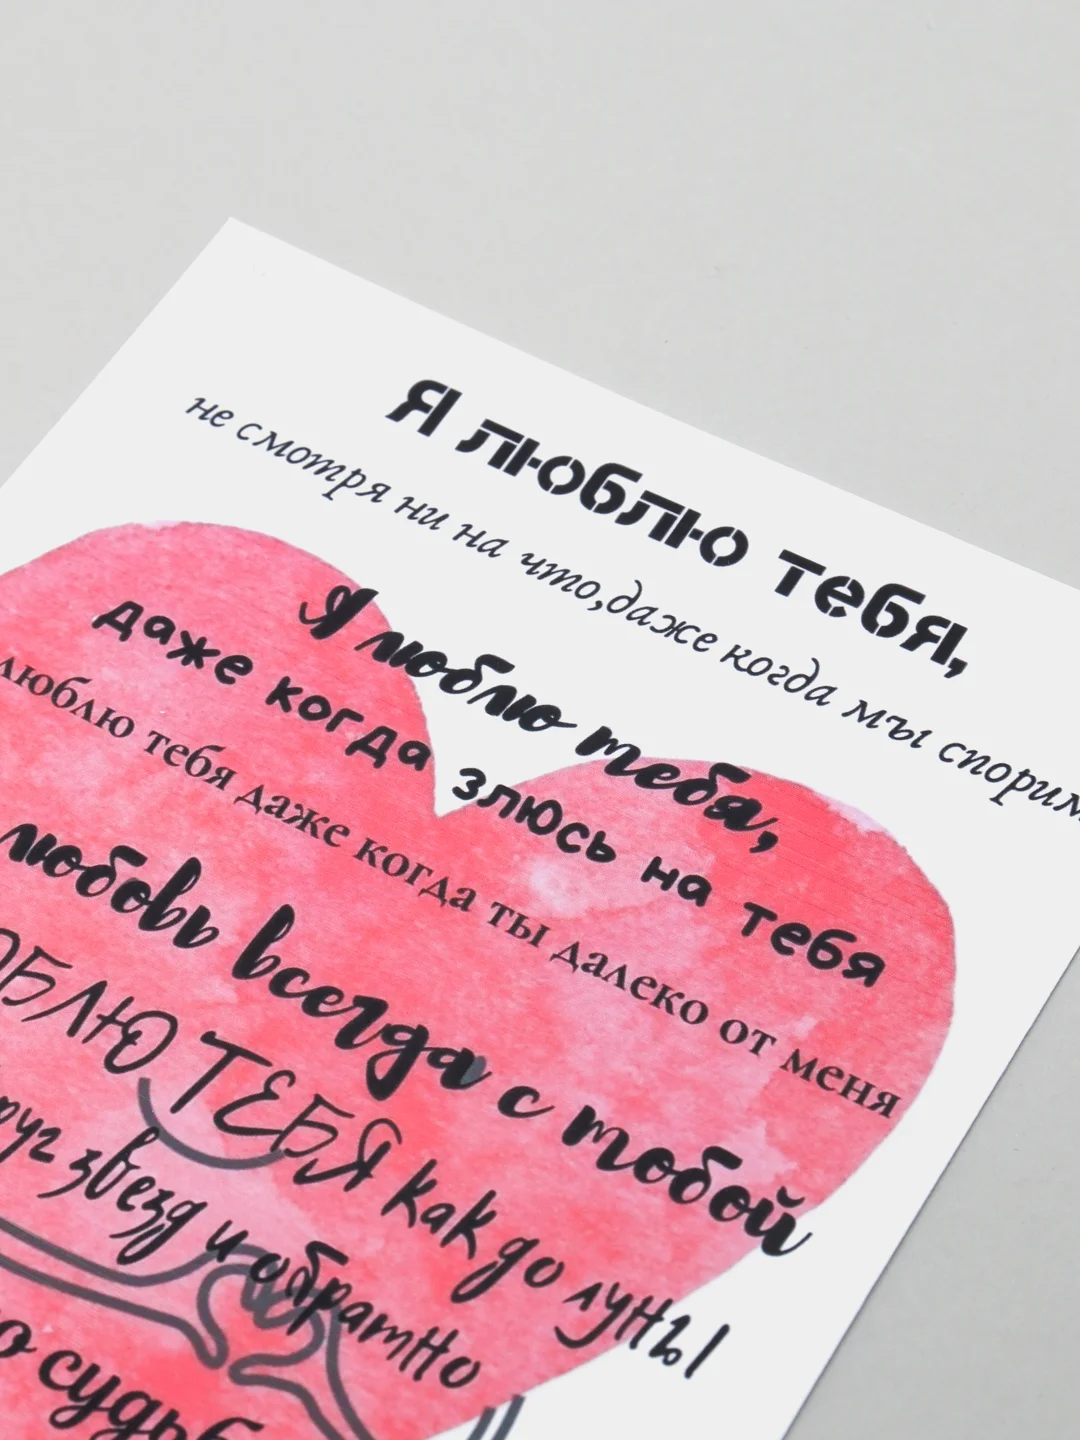 Я люблю тебя,
не смотря ни на что,даже когда мы спорим
Я люблю тебя,
даже когда злюсь на тебя
люблю тебя даже когда ты далеко от меня
любовь всегда с тобой
ТЕБЯ как до луны
звезд и обратно